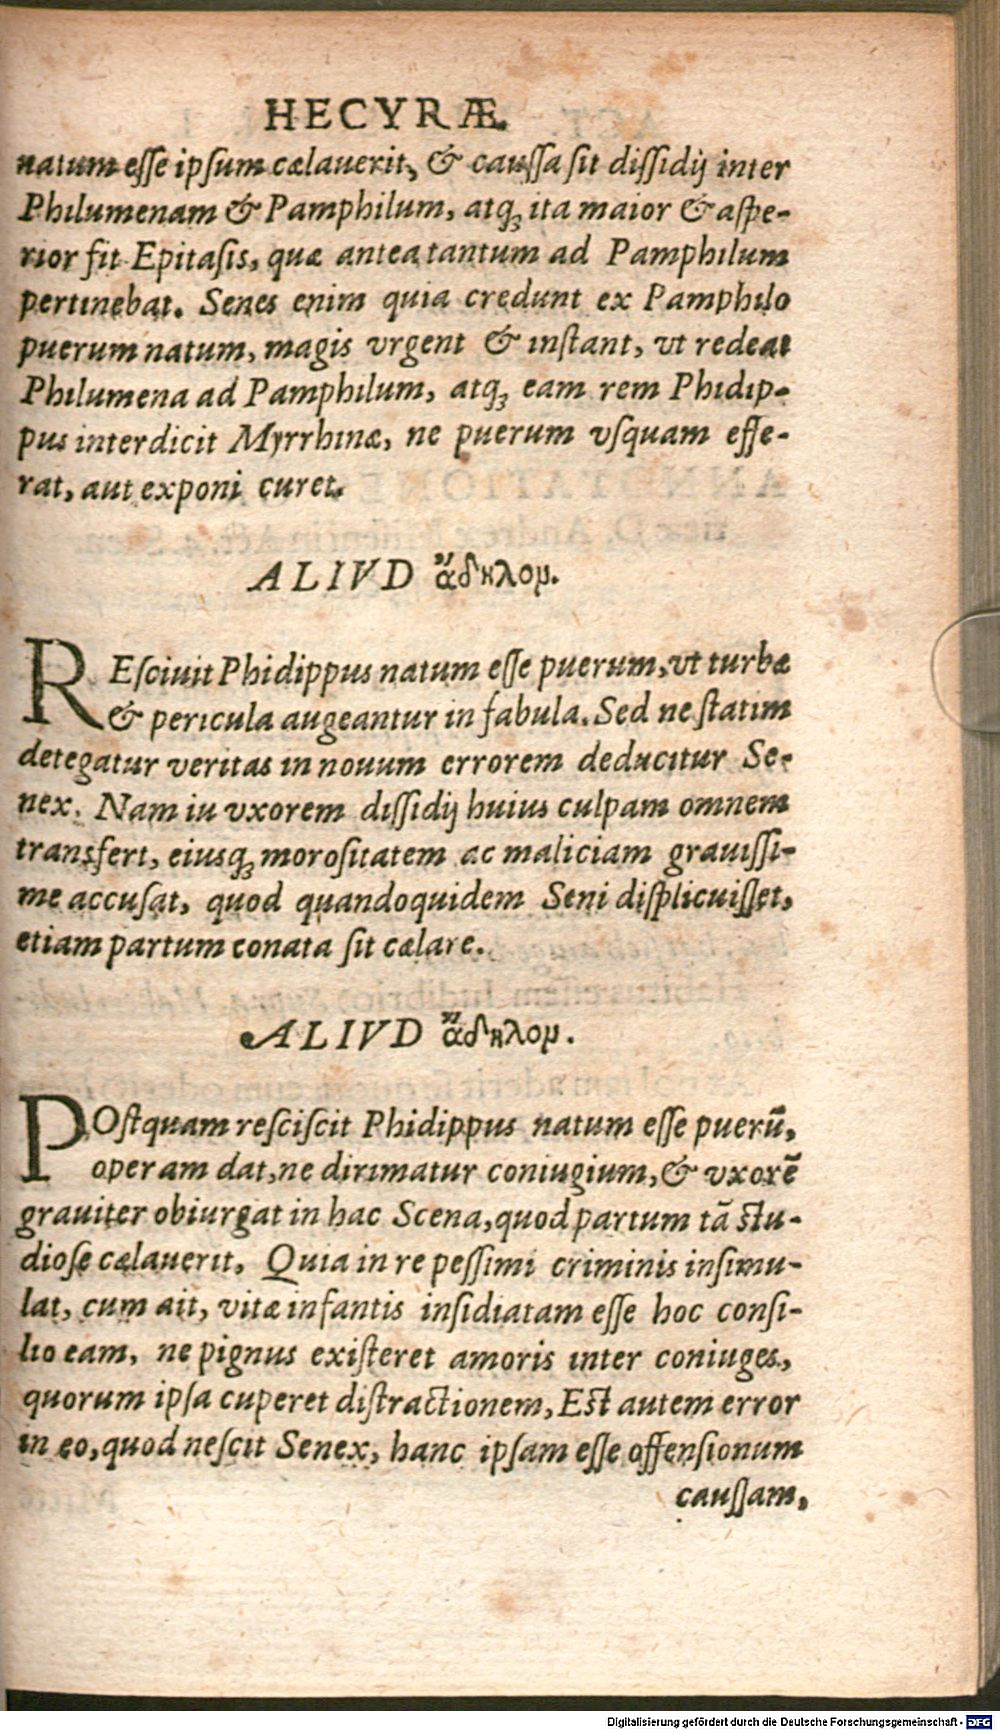 HECYRÆ.
natum esse ipsum cælauerit, & caussa sit dissidij inter
Philumenam & Pamphilum, atq́ue ita maior & aspe-
rior fit Epitasis, quæ antea tantum ad Pamphilum
pertinebat. Senes enim quia credunt ex Pamphilo
puerum natum, magis vrgent & instant, vt redeat
Philumena ad Pamphilum, atq́ue eam rem Phidip-
pus interdicit Myrrhinæ, ne puerum vsquam effe-
rat, aut exponi curet.
ALIVD ἄδηλομ.
REsciuit Phidippus natum esse puerum, vt turbæ
& pericula augeantur in fabula. Sed ne statim
detegatur veritas in nouum errorem deducitur Se-
nex. Nam iu vxorem dissidij huius culpam omnem
transfert, eiusq́ue morositatem ac maliciam grauissi-
me accusat, quod quandoquidem Seni displicuisset,
etiam partum conata sit cælare.
ALIVD ἄδηλομ.
POstquam resciscit Phidippus natum esse puerū,
operam dat, ne dirimatur coniugium, & vxorē
grauiter obiurgat in hac Scena, quod partum tā stu-
diose cælauerit, Quia in re pessimi criminis insimu-
lat, cum ait, vitæ infantis insidiatam esse hoc consi-
lio eam, ne pignus existeret amoris inter coniuges,
quorum ipsa cuperet distractionem, Est autem error
in eo, quod nescit Senex, hanc ipsam esse offensionum
caussam,
Digitalisierung gefördert durch die Deutsche Forschungsgemeinschaft - DFG